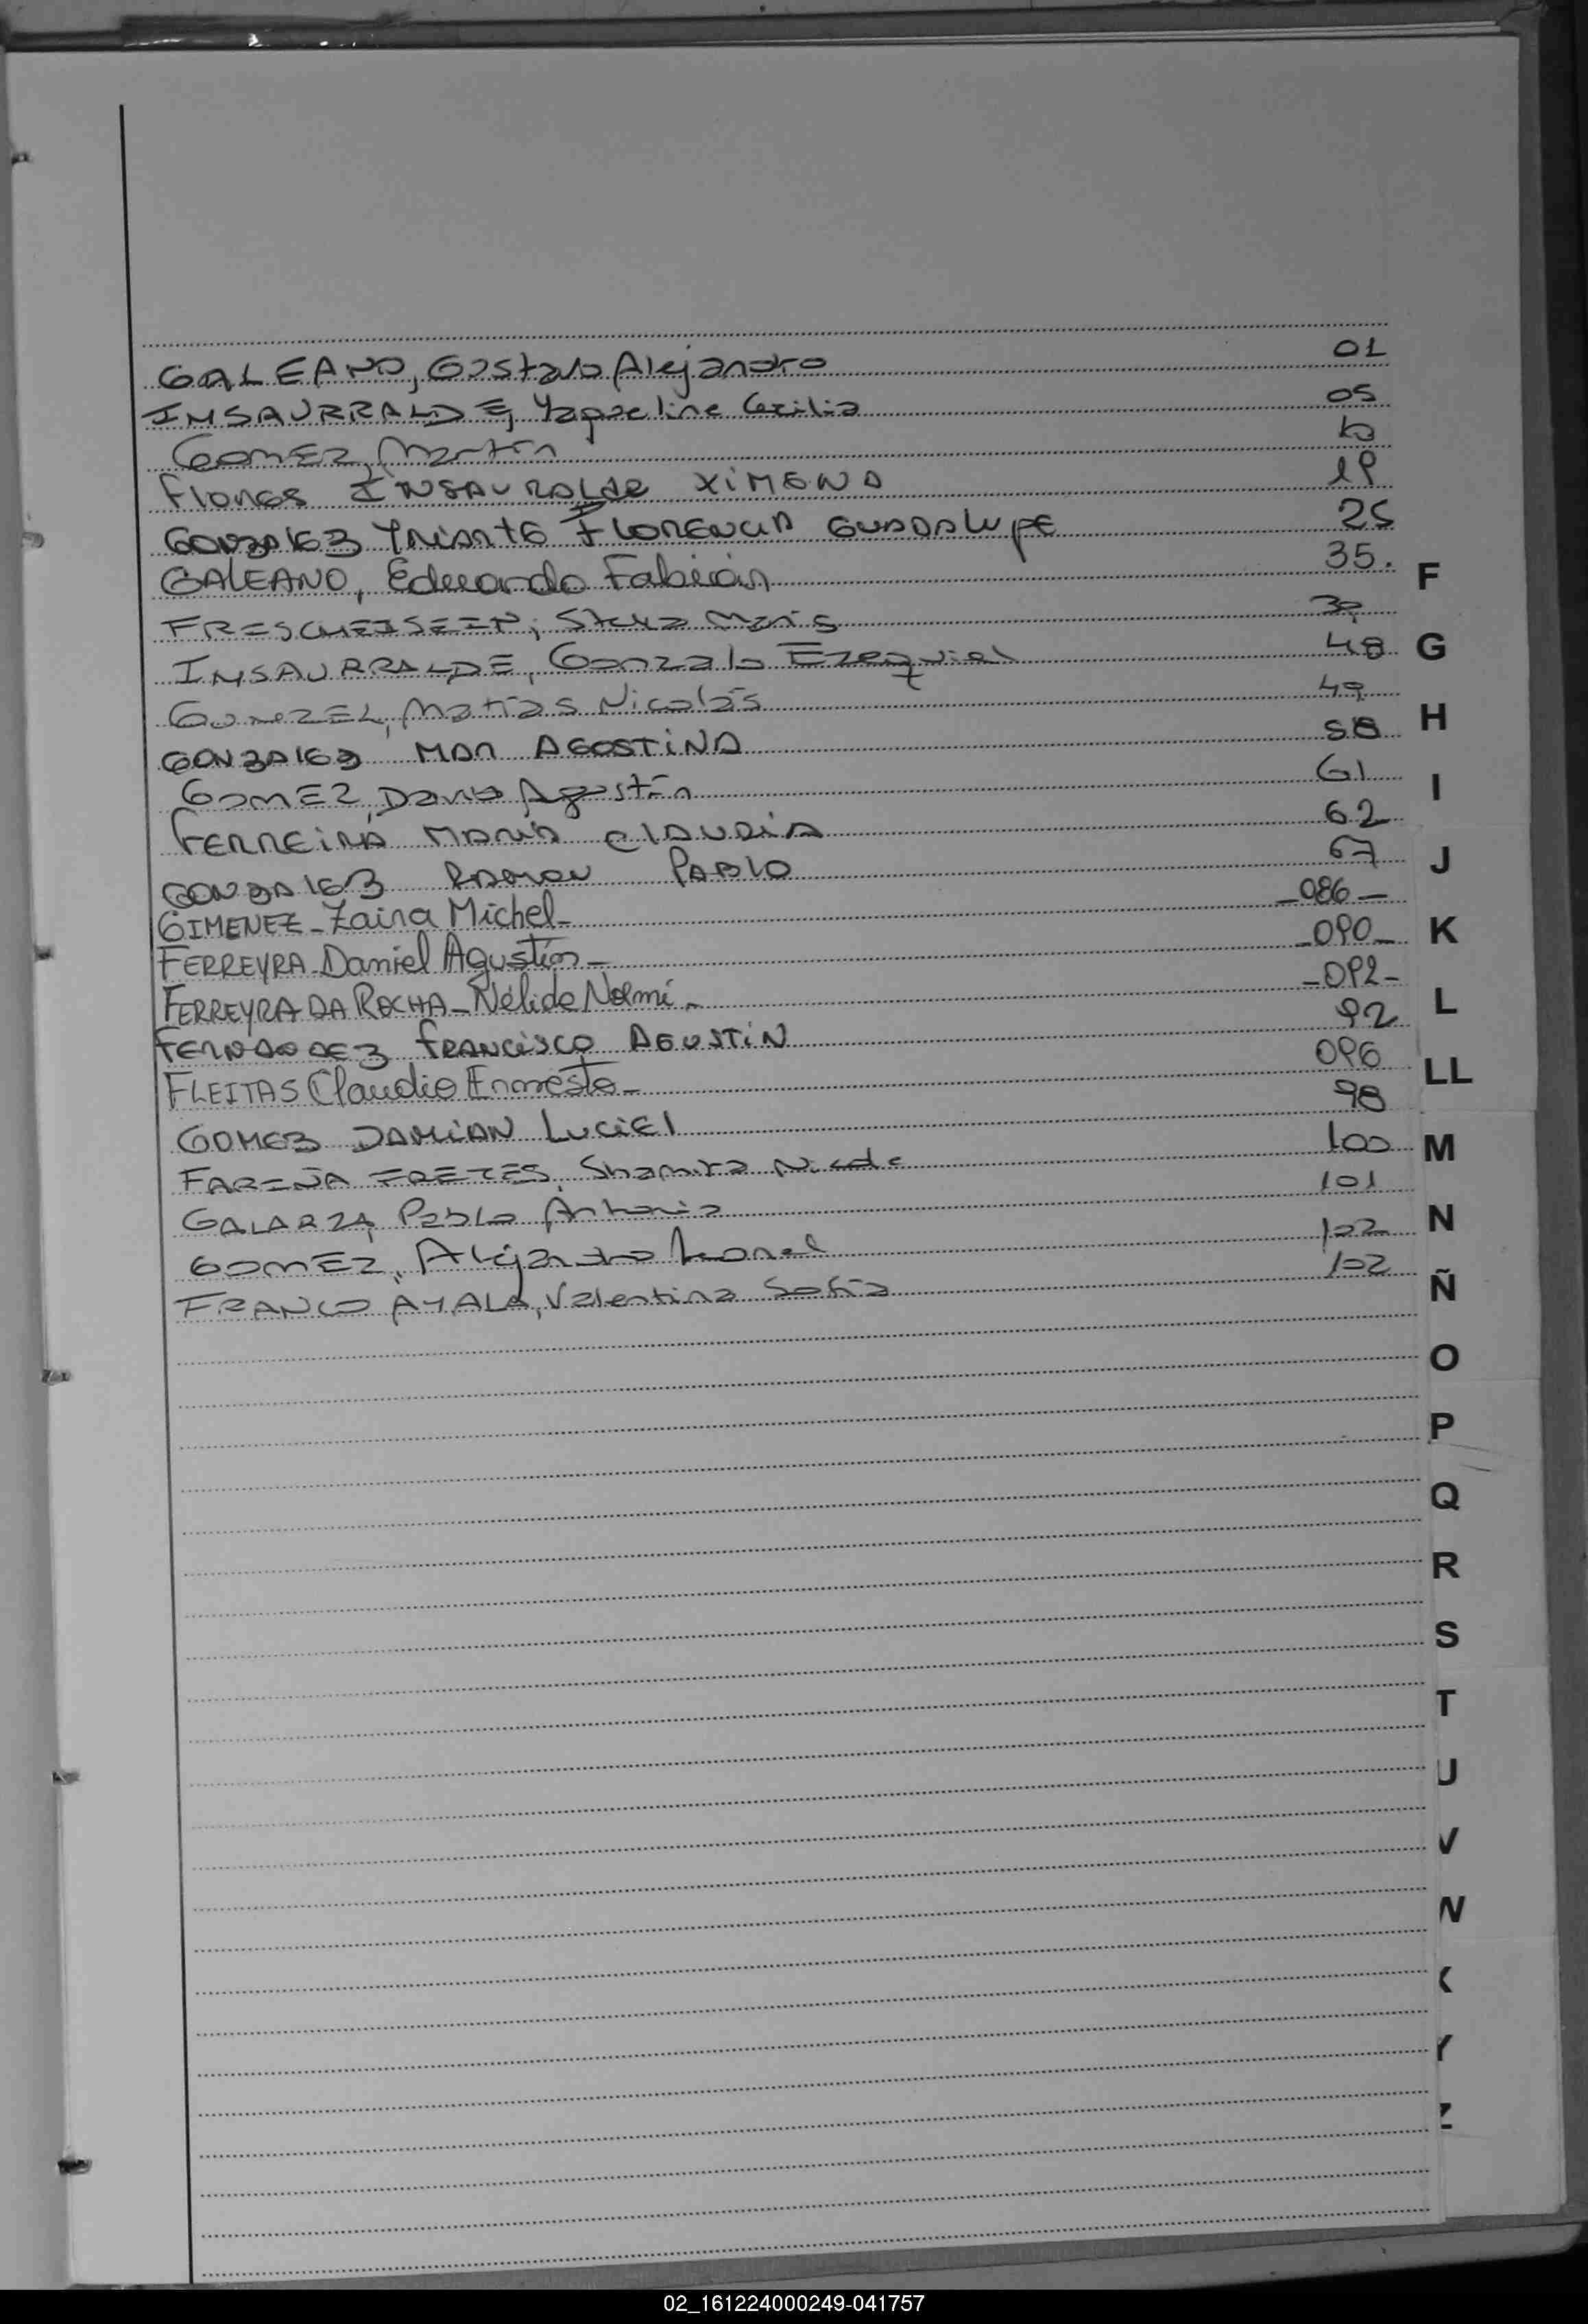 GALEANO, Gustavo Alejandro 01
INSAURRALDE, Yaqueline Cecilia 05
GOMEZ, Martín 10
Flores INSAURRALde XIMENA 19
GONZALEZ YRIARTE FLORENCIA GUADALUPE 25
GALEANO, Eduardo Fabián 35.
Stella Maris 39
INSAURRALDE, Gonzalo Ezequiel 48
Matías Nicolás 49
GONZALEZ MAR AGOSTINA 58
GOMEZ, David Agustín 61
FERREIRA MARIA CLAUDIA 62
GONZALEZ RAMON PABLO 67
GIMENEZ - Zaira Michel - - 086 -
FERREYRA - Daniel Agustín - - 090 -
FERREYRA DA ROCHA - Nélida Noemí - - 092 -
FERNANDEZ FRANCISCO AGUSTIN 92
FLEITAS Claudio Ernesto - 096
GOMEZ DAMIAN LUCIEL 98
FARIÑA FRETES, Shamira Nicole 100
GALARZA, Pablo Antonio 101
GOMEZ, Alejandro Leonel 102
FRANCO AYALA, Valentina Sofía 102
F
G
H
I
J
K
L
LL
M
N
Ñ
O
P
Q
R
S
T
U
V
W
X
Y
Z
02_161224000249-041757